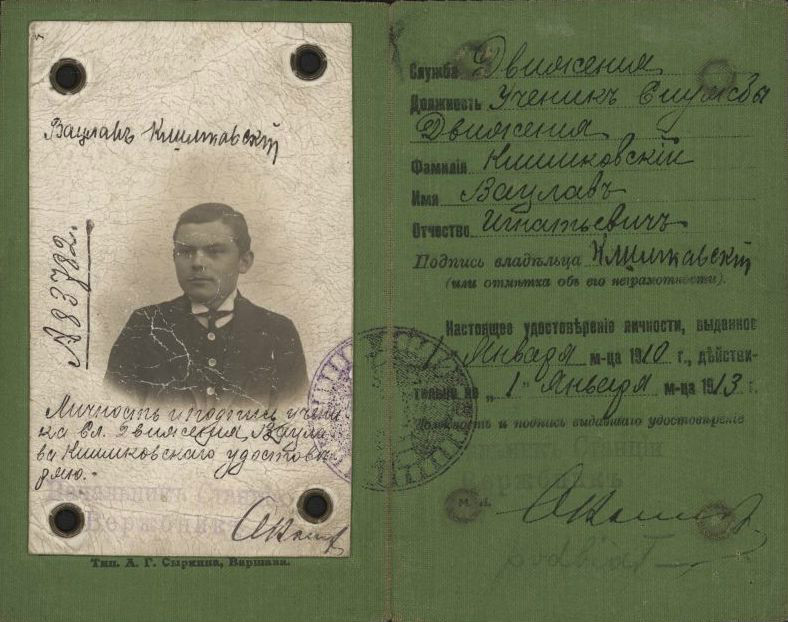 Вацлавъ
А 83782.
Личность и подпись учени
ка Сл. Движенія Вацла
ва удостовѣ
ряю.
Начальникъ Станціи
Тип. А. Г. Сыркина, Варшава.
Служба Движенія
Должность Ученикъ Службы
Движенія
Фамилія
Имя Вацлавъ
Отчество Игнатьевичъ
Подпись владѣльца
(или отмѣтка объ его неграмотности).
Настоящее удостовѣреніе личности, выданное
Января м-ца 1910 г., дѣйстви-
тельно по „1" Января м-ца 1913 г.
Должность и подпись выдавшаго удостовѣреніе
Станціи
М. П.
podbiał